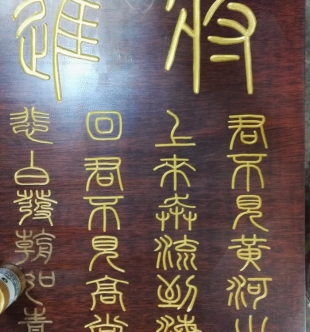 將進
君不見黃河之
上來奔流到海
回君不見高堂
悲白發朝如青